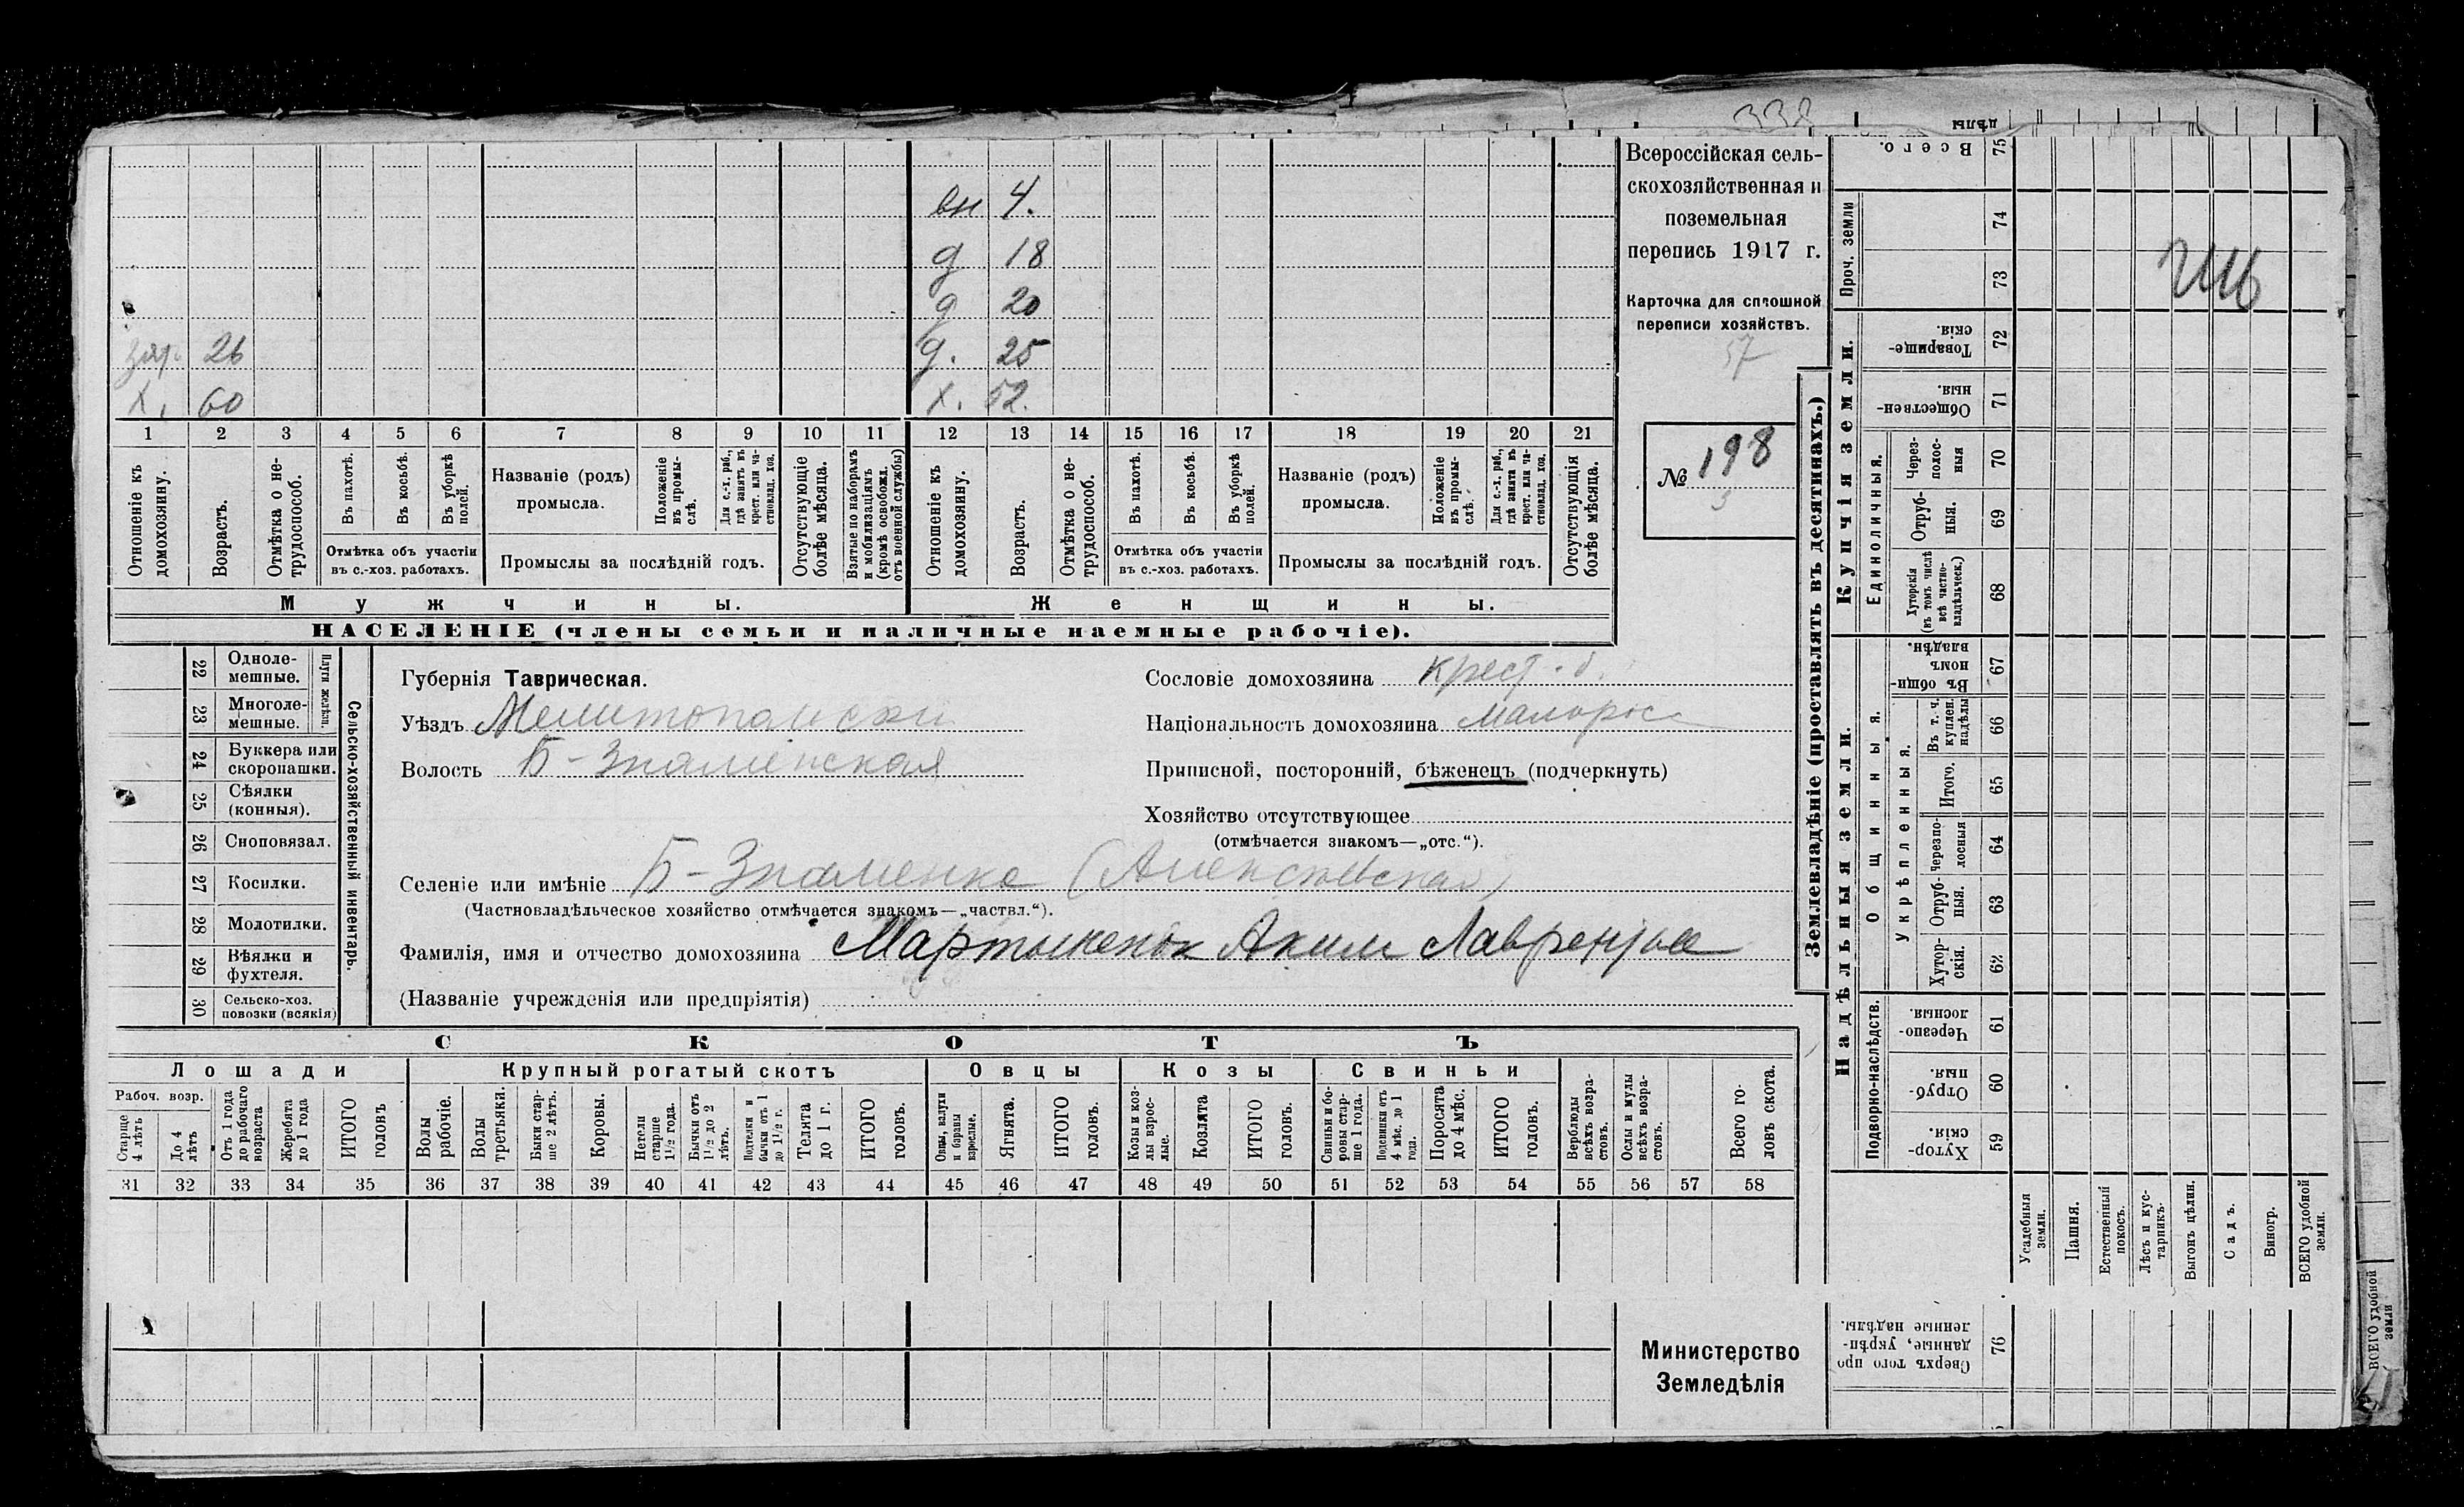 338
дѣлы
вн 4.
д 18
д 20
зят. 26 д. 25
х. 60 х. 52.
1 2 3 4 5 6 7 8 9 10 11 12 13 14 15 16 17 18 19 20 21
Отношеніе къ домохозяину.
Возрастъ.
Отмѣтка о не-трудоспособ.
Въ пахотѣ.
Въ косьбѣ.
Въ уборкѣ полей.
Отмѣтка объ участіи
въ с.-хоз. работахъ.
Названіе (родъ)
промысла.
Положеніе въ промы-слѣ.
Для с.-х, раб., гдѣ занятъ въ крест. или ча-стновлад. хоз.
Промыслы за послѣдній годъ.
Отсутствующіе болѣе мѣсяца.
Взятые по наборамъ и мобилизаціямъ (кромѣ освобожд. отъ военной службы)
Отношеніе къ домохозяину.
Возрастъ.
Отмѣтка о не-трудоспособ.
Въ пахотѣ.
Въ косьбѣ.
Въ уборкѣ полей.
Отмѣтка объ участіи
въ с.-хоз. работахъ.
Названіе (родъ)
промысла.
Положеніе въ промы-слѣ.
Для с.-х, раб., гдѣ занятъ въ крест. или ча-стновлад. хоз.
Промыслы за послѣдній годъ.
Отсутствующія болѣе мѣсяца.
Мужчины. Женщины.
НАСЕЛЕНІЕ (члены семьи и наличные наемные рабочіе).
Всероссійская сель-
скохозяйственная и
поземельная
перепись 1917 г.
Карточка для сплошной
переписи хозяйствъ.
57
№ 198
3
22 Одноле-
мешные.
23 Многоле-
мешные.
Плуги желѣзн.
24 Буккера или
скоропашки.
25 Сѣялки
(конныя).
26 Сноповязал.
27 Косилки.
28 Молотилки.
29 Вѣялки и
фухтеля.
30 Сельско-хоз.
повозки (всякія)
Сельско-хозяйственный инвентарь.
Губернія Таврическая.
Уѣздъ Мелитопольски
Волость Б-Знаменская
Сословіе домохозяина крест.
Національность домохозяина малорос
Приписной, посторонній, бѣженецъ (подчеркнуть)
Хозяйство отсутствующее
(отмѣчается знакомъ—„отс.“).
Селеніе или имѣніе Б-Знаменка
(Частновладѣльческое хозяйство отмѣчается знакомъ—„частвл.“).
Фамилія, имя и отчество домохозяина Мартыненок Аким
(Названіе учрежденія или предпріятія)
СКОТЪ
Лошади Крупный рогатый скотъ Овцы Козы Свиньи
Рабоч. возр.
Старше 4 лѣтъ
До 4 лѣтъ
Отъ 1 года до рабочаго возраста
Жеребята до 1 года
ИТОГО головъ
Волы рабочіе.
Волы третьяки.
Быки стар-ше 2 лѣтъ.
Коровы.
Нетели старше 1 1/2 года.
Бычки отъ 1 1/2 до 2 лѣтъ.
Подтелки и бычки отъ 1 до 1 1/2 г.
Телята до 1 г.
ИТОГО головъ.
Овцы, валухи и бараны взрослые.
Ягнята.
ИТОГО головъ.
Козы и коз-лы взрос-лые.
Козлята
ИТОГО головъ.
Свиньи и бо-ровы стар-ше 1 года.
Подсвинки отъ 4 мѣс. до 1 года.
Поросята до 4 мѣс.
ИТОГО головъ.
Верблюды всѣхъ возра-стовъ.
Ослы и мулы всѣхъ возра-стовъ.
Всего го-ловъ скота.
31 32 33 34 35 36 37 38 39 40 41 42 43 44 45 46 47 48 49 50 51 52 53 54 55 56 57 58
Министерство
Земледѣлія
Землевладѣніе (проставлять въ десятинахъ.)
Купчія земли.
Надѣльныя земли.
Всего. 75
Проч. земли 74
73
Товарище-скія. 72
Обществен-ныя. 71
Единоличныя.
Через-полос-ныя 70
Отруб-ныя. 69
Хуторскія (въ томъ числѣ всѣ частно-владѣльческ.) 68
Общинныя.
Въ общин-номъ владѣн. 67
Укрѣпленныя.
Въ т. ч. куплен. надѣлы 66
Итого. 65
Черезпо-лосныя 64
Отруб-ныя. 63
Хутор-скія. 62
Подворно-наслѣдств.
Черезпо-лосныя. 61
Отруб-ныя. 60
Хутор-скія. 59
Усадебныя земли.
Пашня.
Естественный покосъ.
Лѣсъ и кус-тарникъ.
Выгонъ цѣлин.
Садъ.
Виногр.
ВСЕГО удобной земли.
Сверхъ того про-данные, укрѣп-ленные надѣлы. 76
ВСЕГО удобной земли